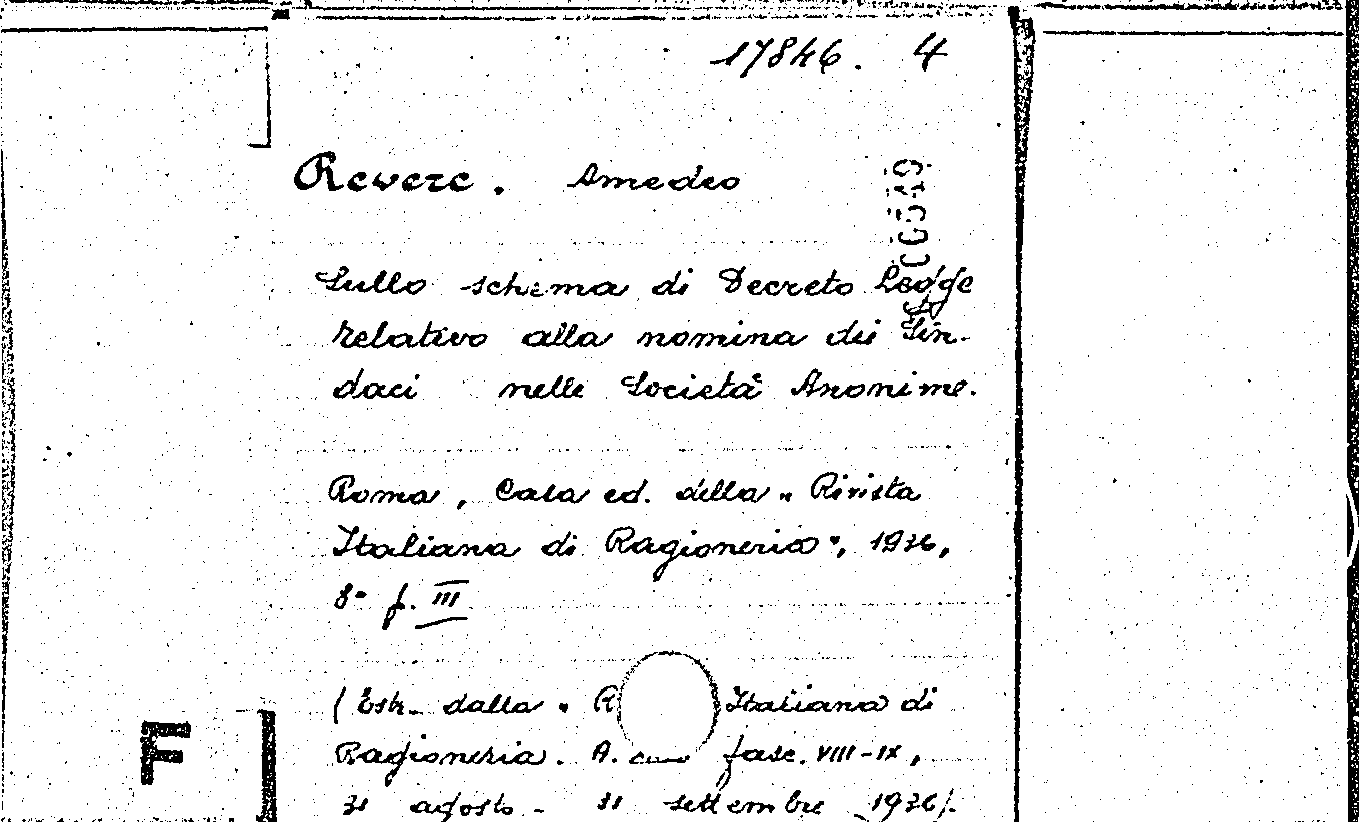 17846. 4
Revere. Amedeo
Sullo schema di Decreto Legge
relativo alla nomina dei Sin-
daci nelle Società Anonime.
Roma, Casa ed. della " Rivista
Italiana di Ragioneria", 1936,
8° f. III
(Estr. dalla " R Italiana di
Ragioneria. A. fasc. VIII-IX,
31 agosto - 31 settembre 1936).
F